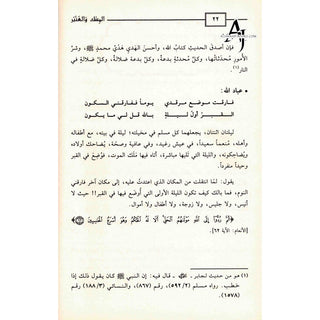 ٢٢
البِطَاقَة وَالعُنْصُر
فإن أصدقَ الحديثِ كتابُ الله، وأحسنَ الهدي هَدْيُ محمدٍ ﷺ، وشرَّ
الأمورِ مُحدثاتُها، وكلَّ مُحدثةٍ بدعةٌ، وكلَّ بدعةٍ ضلالةٌ، وكلَّ ضلالةٍ في
النار(١)
• عباد الله:
فارقت موضع مرقدي يوماً ففارقني السكون
القبر أول ليلة بالله قل لي ما يكون
ليلتان اثنتان، يجعلهما كل مسلم في مخيلته؛ ليلة في بيته، مع أطفاله
وأهله، مُنعماً سعيداً، في عيش رغيد، وفي عافية وصحة، يُضاحك أولاده
ويُضاحكونه، والليلة التي تليها مباشرة، أتاه فيها ملك الموت، فوُضِعَ في القبر
وحده.
يقول: لمّا انتقلت من المكان الذي اعتدتُ عليه، إلى مكان آخر فارقني
النوم، فما بالك كيف تكون الليلة الأولى التي أُوضع فيها في القبر!! حيث لا
أنيس، ولا جليس، ولا زوجة، ولا أطفال ولا أموال.
﴿ثُمَّ رُدُّوا إِلَى اللَّهِ مَوْلَاهُمُ الْحَقِّ أَلَا لَهُ الْحُكْمُ وَهُوَ أَسْرَعُ الْحَاسِبِينَ﴾
[الأنعام: الآية ٦٢].
(١) هو من حديث لجابر، قال فيه: إن النبي ﷺ كان يقول ذلك إذا
خطب. رواه مسلم (٥٩٢/٢)، رقم (٨٦٧)، والنسائي (١٨٨/٣) رقم
(١٥٧٨)